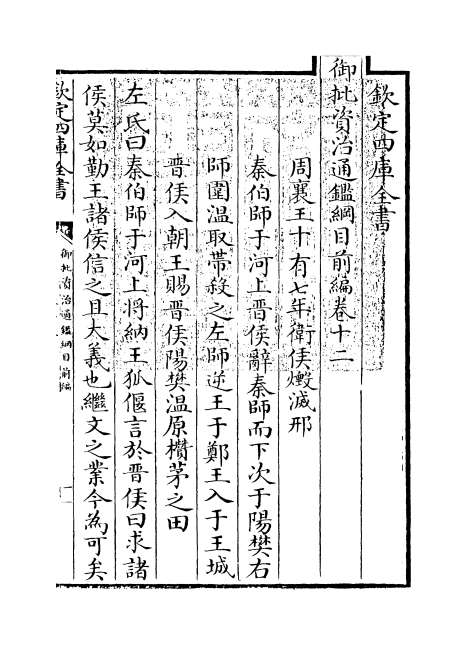 欽定四庫全書
御批資治通鑑綱目前編卷十二
周襄王十有七年衛侯燬滅邢
秦伯師于河上晉侯辭秦師而下次于陽樊右
師圍溫取帶殺之左師逆王于鄭王入于王城
晉侯入朝王賜晉侯陽樊溫原欑茅之田
左氏曰秦伯師于河上將納王狐偃言於晉侯曰求諸
侯莫如勤王諸侯信之且大義也繼文之業今為可矣
欽定四庫全書
御批資治通鑑綱目前編
一